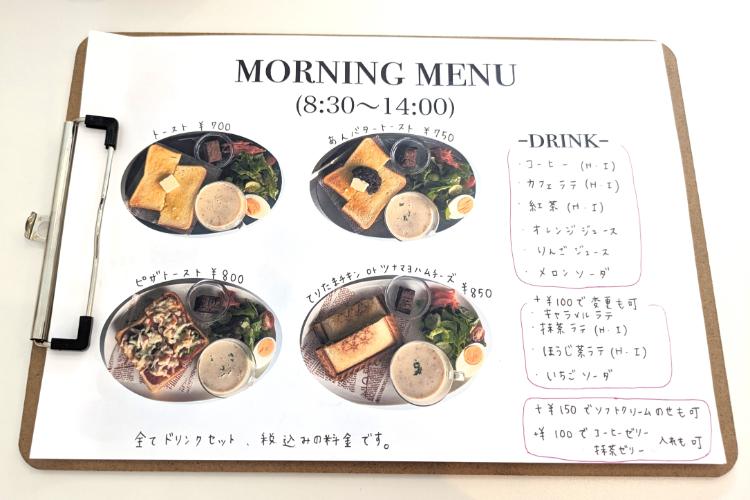 MORNING MENU
(8:30〜14:00)
トースト ¥700
あんバタートースト ¥750
ピザトースト ¥800
てりたまチキン or ツナマヨハムチーズ ¥850
全てドリンクセット、税込みの料金です。
-DRINK-
・コーヒー (H・I)
・カフェラテ (H・I)
・紅茶 (H・I)
・オレンジジュース
・りんごジュース
・メロンソーダ
+¥100で変更も可
・キャラメルラテ
・抹茶ラテ (H・I)
・ほうじ茶ラテ (H・I)
・いちごソーダ
+¥150でソフトクリームのせも可
+¥100でコーヒーゼリー 入れも可
抹茶ゼリー